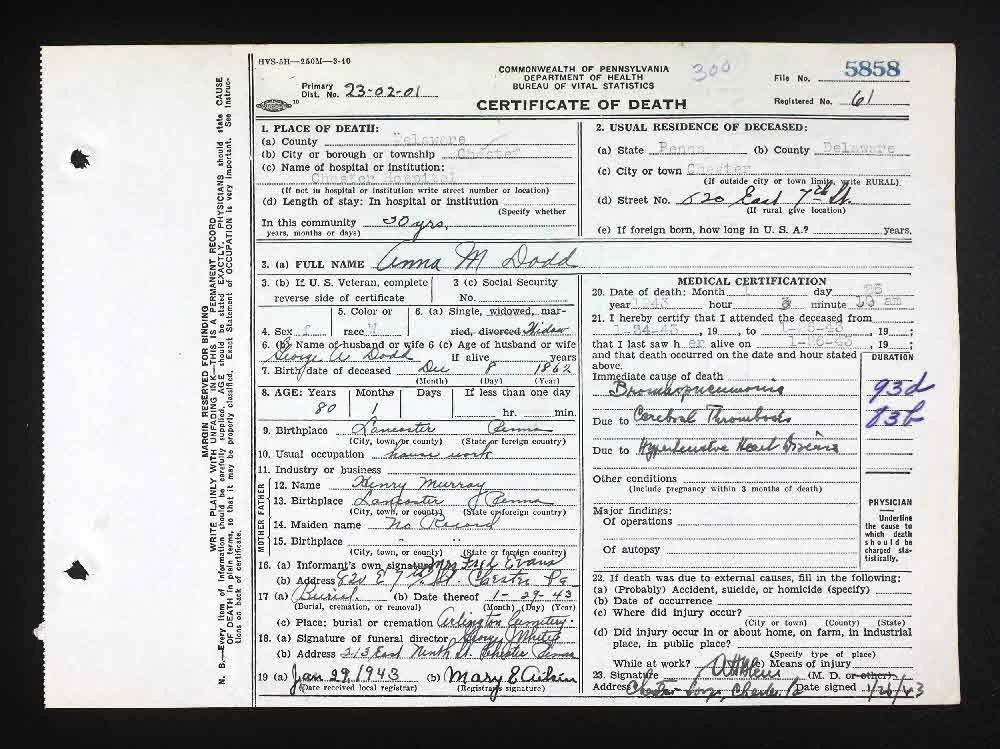 HVS-5H—250M—3-40
COMMONWEALTH OF PENNSYLVANIA
DEPARTMENT OF HEALTH
BUREAU OF VITAL STATISTICS
CERTIFICATE OF DEATH
300
Primary Dist. No. 23-02-01
File No. 5858
Registered No. 61
MARGIN RESERVED FOR BINDING
WRITE PLAINLY WITH UNFADING INK—THIS IS A PERMANENT RECORD
N. B.—Every item of information should be carefully supplied. AGE should be stated EXACTLY. PHYSICIANS should state CAUSE
OF DEATH in plain terms, so that it may be properly classified. Exact Statement of OCCUPATION is very important. See Instruc-
tions on back of certificate.
1. PLACE OF DEATH:
(a) County Delaware
(b) City or borough or township Chester
(c) Name of hospital or institution:
Chester Hospital
(If not in hospital or institution write street number or location)
(d) Length of stay: In hospital or institution
(Specify whether
In this community yrs.
years, months or days)
2. USUAL RESIDENCE OF DECEASED:
(a) State Penna (b) County Delaware
(c) City or town Chester
(If outside city or town limits, write RURAL)
(d) Street No. 620 East 7th St.
(If rural give location)
(e) If foreign born, how long in U. S. A.? years.
3. (a) FULL NAME Anna M Dodd
3. (b) If U. S. Veteran, complete
reverse side of certificate
3 (c) Social Security
No.
4. Sex F
5. Color or
race W
6. (a) Single, widowed, mar-
ried, divorced Widow
6. (b) Name of husband or wife
George A Dodd
6 (c) Age of husband or wife
if alive years
7. Birth date of deceased Dec 8 1862
(Month) (Day) (Year)
8. AGE: Years Months Days If less than one day
80 1 hr. min.
9. Birthplace Lancaster Penna
(City, town, or county) (State or foreign country)
10. Usual occupation house work
11. Industry or business
FATHER
12. Name Henry Murray
13. Birthplace Lancaster Penna
(City, town, or county) (State or foreign country)
MOTHER
14. Maiden name No Record
15. Birthplace " "
(City, town, or county) (State or foreign country)
16. (a) Informant's own signature Mrs Fred Evans
(b) Address 620 E 7th St. Chester Pa
17 (a) Burial (b) Date thereof 1- 29-43
(Burial, cremation, or removal) (Month) (Day) (Year)
(c) Place: burial or cremation Arlington Cemetery.
18. (a) Signature of funeral director
(b) Address 213 East Ninth St. Chester Penna
19 (a) Jan 29, 1943 (b) Mary E Aitken
(Date received local registrar) (Registrar's signature)
MEDICAL CERTIFICATION
20. Date of death: Month 1 day 26
year 1943 hour 3 minute 10 am
21. I hereby certify that I attended the deceased from
1-24-43, 19 to 1-26-43, 19;
that I last saw her alive on 1-26-43, 19;
and that death occurred on the date and hour stated
above.
DURATION
Immediate cause of death
Bronchopneumonia
93d
Due to Cerebral Thrombosis
83b
Due to Hypertensive Heart Disease
Other conditions
(Include pregnancy within 3 months of death)
Major findings:
Of operations
Of autopsy
PHYSICIAN
Underline
the cause to
which death
should be
charged sta-
tistically.
22. If death was due to external causes, fill in the following:
(a) (Probably) Accident, suicide, or homicide (specify)
(b) Date of occurrence
(c) Where did injury occur?
(City or town) (County) (State)
(d) Did injury occur in or about home, on farm, in industrial
place, in public place?
(Specify type of place)
While at work? (e) Means of injury
23. Signature (M. D. or other)
Address Chester Pa Date signed 1/26/43